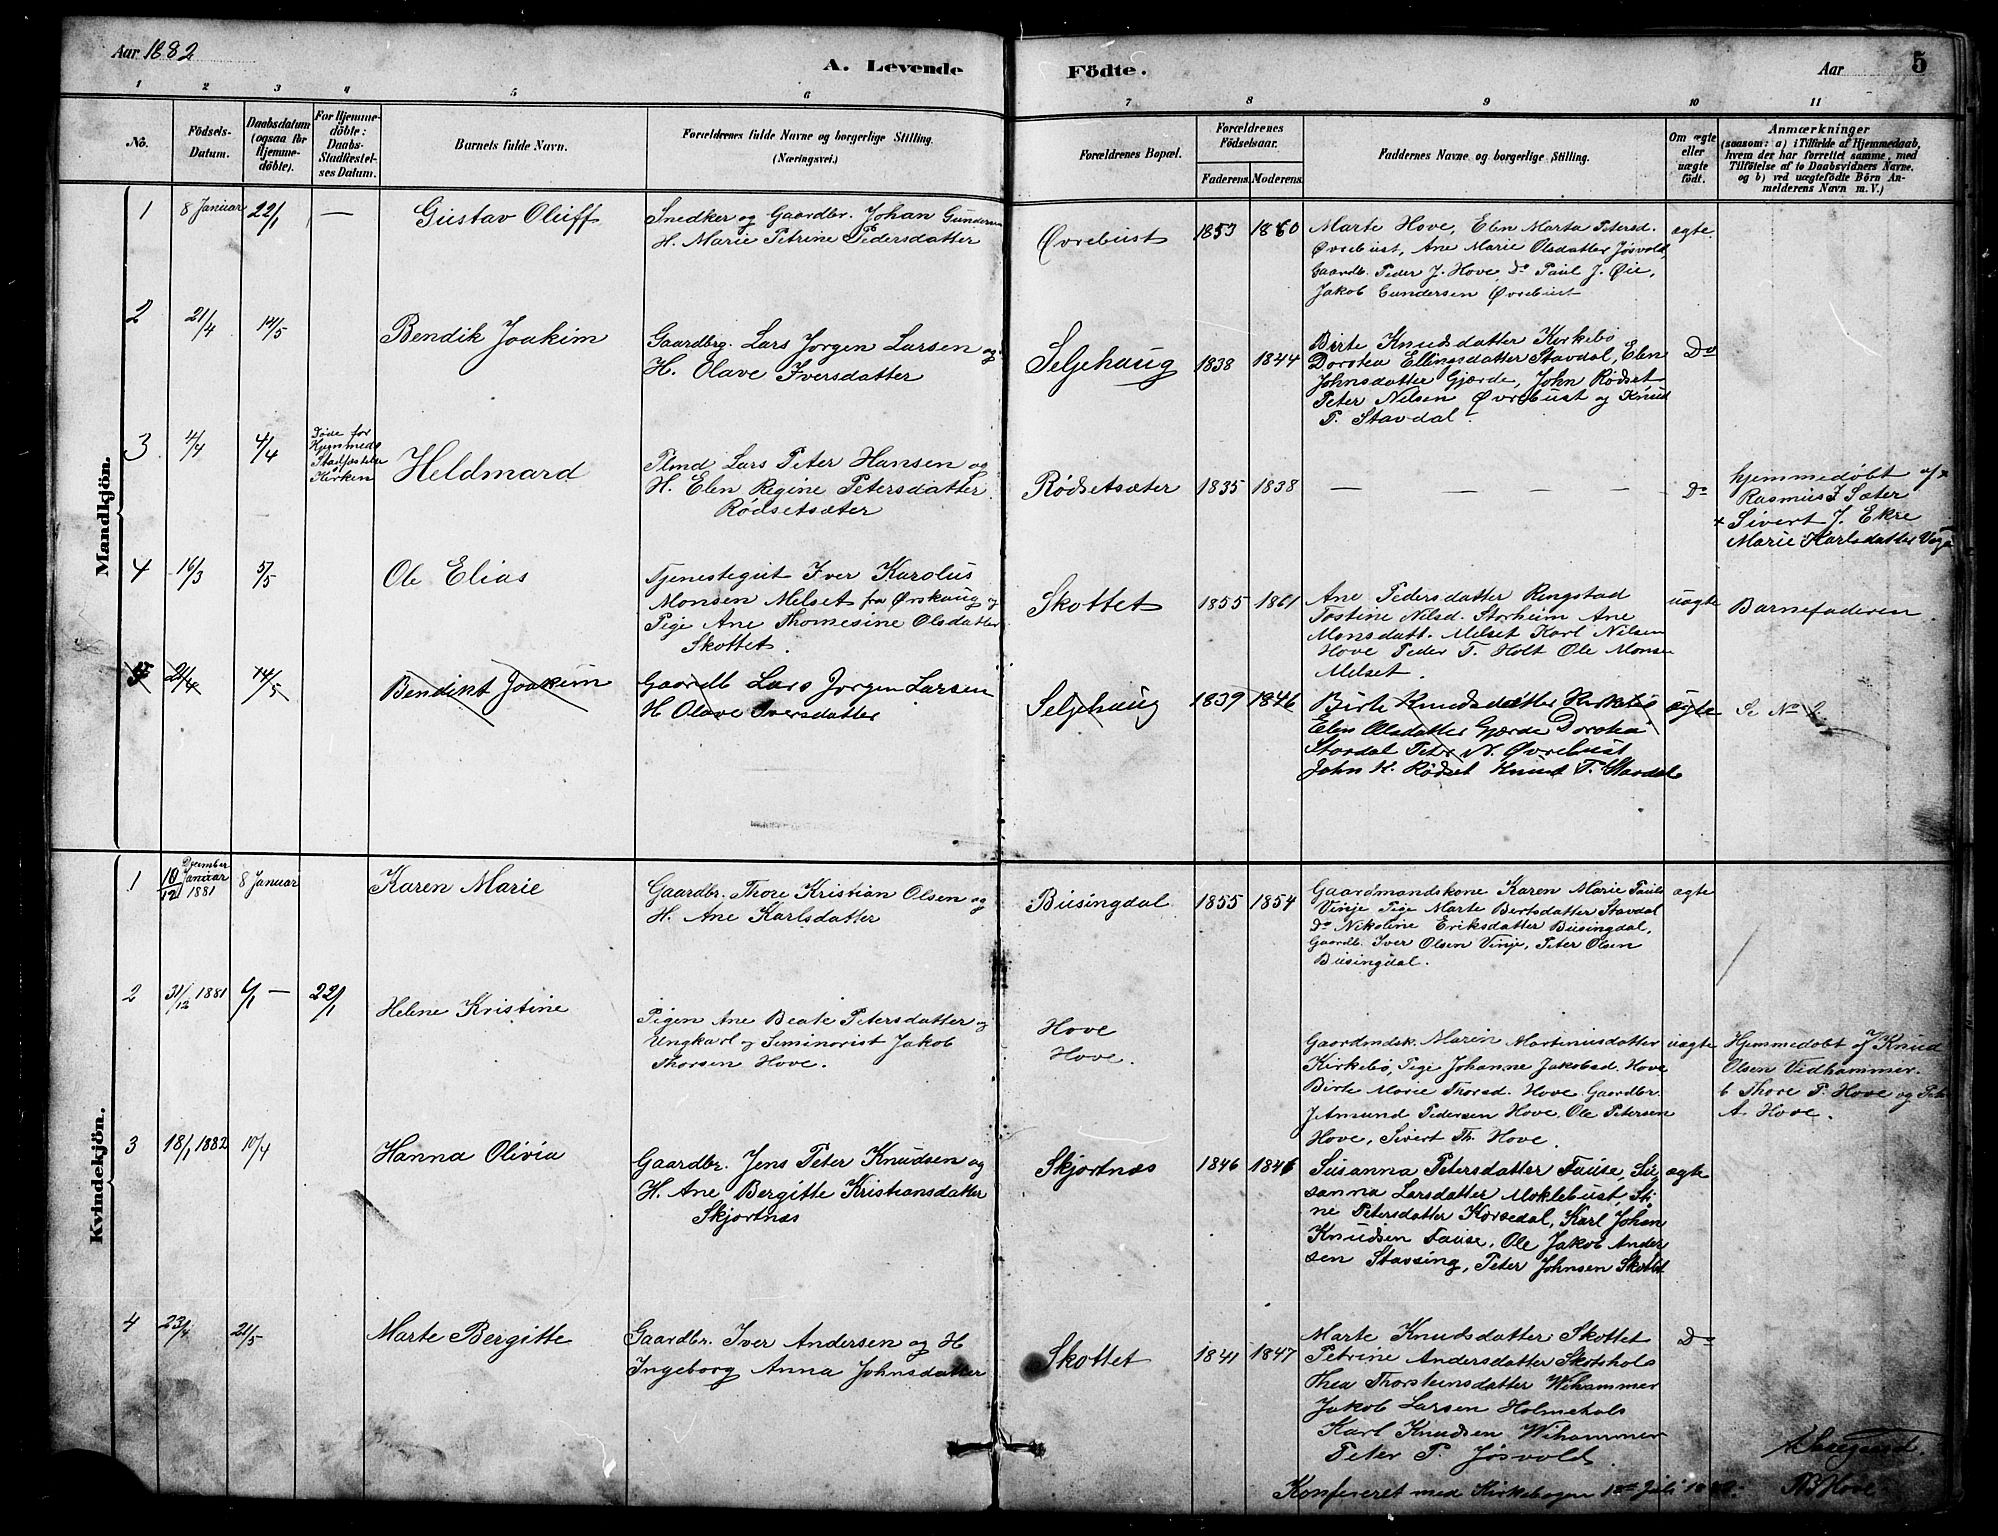 Aar 1882
A. Levende
Födte.
Aar
5
1 2 3 4 5 6 7 8 9 10 11
No.
Födsels-
Datum.
Daabsdatum
(ogsaa for
Hjemme-
döbte).
For Hjemme-
döbte:
Daabs-
Stadfæstel-
ses Datum.
Barnets fulde Navn.
Forældrenes fulde Navne og borgerlige Stilling.
(Næringsvei.)
Forældrenes Bopæl.
Forældrenes
Födselsaar.
Faderens
Moderens
Faddernes Navne og borgerlige Stilling.
Om ægte
eller
uægte
födt.
Anmærkninger
(saasom: a) i Tilfælde af Hjemmedaab,
hvem der har forrettet samme, med
Tilföielse af to Daabsvidners Navne,
og b) ved uægtefödte Börn An-
melderens Navn m. V.)
Mandkjön.
1
8 Januar
22/1
—
Gustav Oluff
Snedker og Gaardbr. Johan Gundersen
H. Marie Petrine Pedersdatter
Øvrebust
1853
1860
Marte Hove, Elen Marta Petersd.
Øvrebust, Ane Marie Olsdatter Jøsvold,
Gaardb. Peder J. Hove Do Paul J. Øie,
Jakob Gundersen Øvrebust
ægte
2
21/4
14/5
Bendik Joakim
Gaardbrg. Lars Jørgen Larsen og
H. Olave Iversdatter
Seljehaug
1838
1844
Birte Knudsdatter Kirkebø
Dorotea Ellingsdatter Stavdal, Elen
Johnsdatter Gjærde, John Rødset
Peter Nilsen Øvrebust og Knud
T. Stavdal.
Do
3
4/4
4/4
Døde før
Hjemmed.
Stadfæstelse
Kirken
Heldmard
Plmd Lars Peter Hansen og
H. Elen Regine Petersdatter
Rødsetsæter
Rødsetsæter
1835
1838
— — — — —
Do
hjemmedøbt af +
Rasmus J Sæter
+ Sivert J. Ekre
Marie Karlsdatter
4
16/3
5/5
Ole Elias
Tjenestegut Iver Karolus
Monsen Melset fra Ørskaug og
Pige Ane Thomesine Olsdatter
Skottet.
Skottet
1855
1861
Ane Pedersdatter Ringstad
Tostine Nilsd. Storheim Ane
Monsdatt. Melset Karl Nilsen
Hove Peder T. Holt Ole Monsen
Melset.
uægte
Barnefaderen
5
21/4
14/5
Bendikt Joakim
Gaardb Lars Jorgen Larsen
H Olave Iversdatter
Seljehaug
1839
1846
Birte Knudsdatter Kirkebø
Elen Olsdatter Gjærde Dorotea
Stavdal Peter N. Øvrebust
John K. Rødset Knud T. Stavdal
ægte
Se No 2
Kvindekjön.
1
10/12
December
Januar
1881
8 Januar
Karen Marie
Gaardbr. Thore Kristian Olsen og
H. Ane Karlsdatter
Busingdal
1855
1854
Gaardmandskone Karen Marie Pauls
Vinje Pige Marte Bertsdatter Stavdal
Do Nikoline Eriksdatter Busingdal,
Gaardb. Iver Olsen Vinje, Peter Olsen
Busingdal.
ægte
2
31/12 1881
6/1 —
22/1
Helene Kristine
Pigen Ane Beate Petersdatter og
Ungkarl og Seminorist Jakob
Thorsen Hove.
Hove
Hove.
Gaardmdsk. Maren Martinusdatter
Kirkebø, Pige Johanne Jakobsd. Hove
Birte Marie Thorsd. Hove. Gaardbr.
J Amund Pedersen Hove, Ole Petersen
Hove, Sivert Th. Hove.
uægte
Hjemmedøbt af Knud
Olsen Vidhammer.
b Thore P. Hove og
A. Hove.
3
18/1 1882
10/4
Hanna Olivia
Gaardbr. Jens Peter Knudsen og
H. Ane Bergitte Kristiansdatter
Skjortnæs
Skjortnæs
1846
1846
Susanna Petersdatter Fause, Su
sanna Larsdatter Moklebust, Sti
ne Petersdatter Korsedal, Karl Johan
Knudsen Fause, Ole Jakob Ander
sen Stavsing, Peter Johnsen Skottet
ægte
4
23/4
21/5
Marte Bergitte
Gaardbr. Iver Andersen og H
Ingeborg Anna Johnsdatter
Skottet
1841
1847
Marte Knudsdatter Skottet
Petrine Andersdatter Skotshols
Thea Thorsteinsdatter Wihammer
Jakob Larsen Holmehols
Karl Knudsen Wihammer
Peter P. Jøsvold.
Do
Konfereret med Kirkebogen 18de Juli
Hove